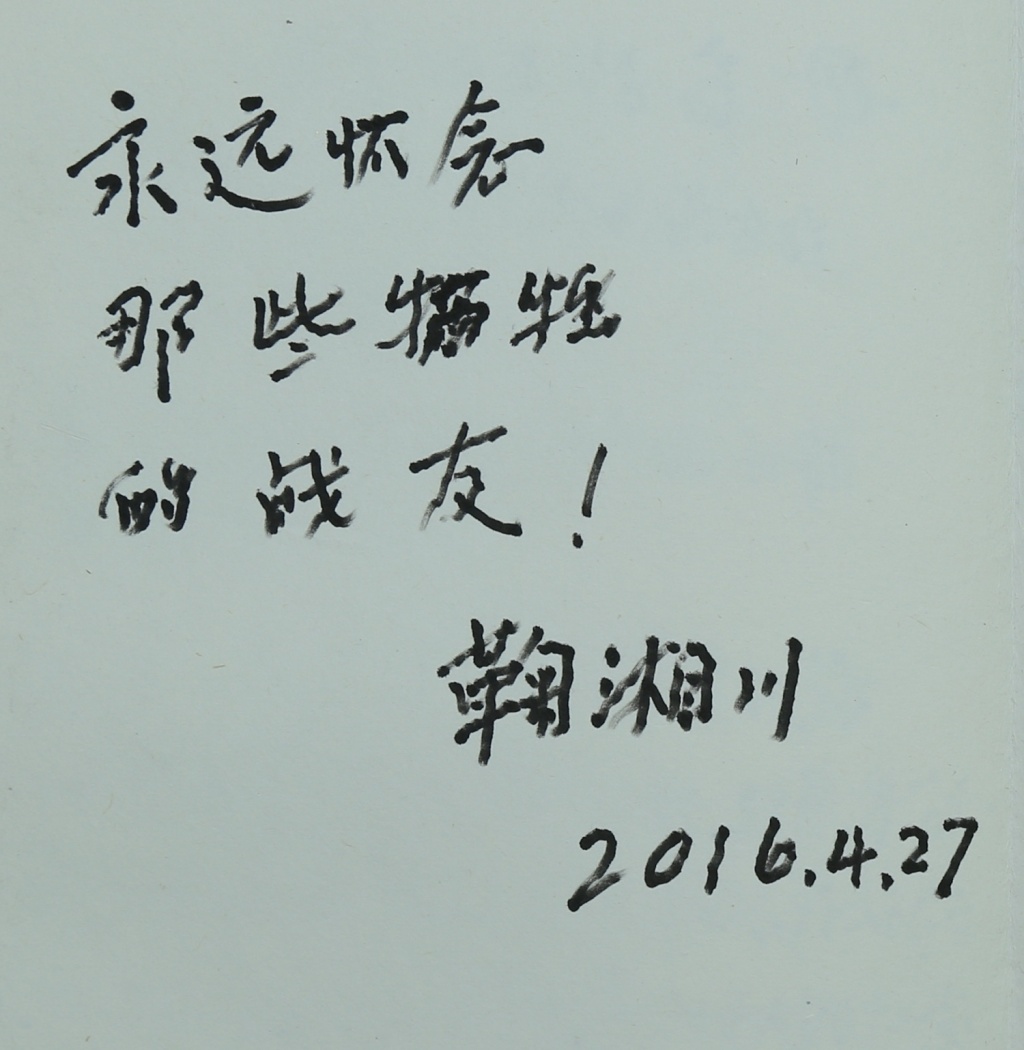 永远怀念
那些牺牲
的战友！
鞠湘川
2016.4.27